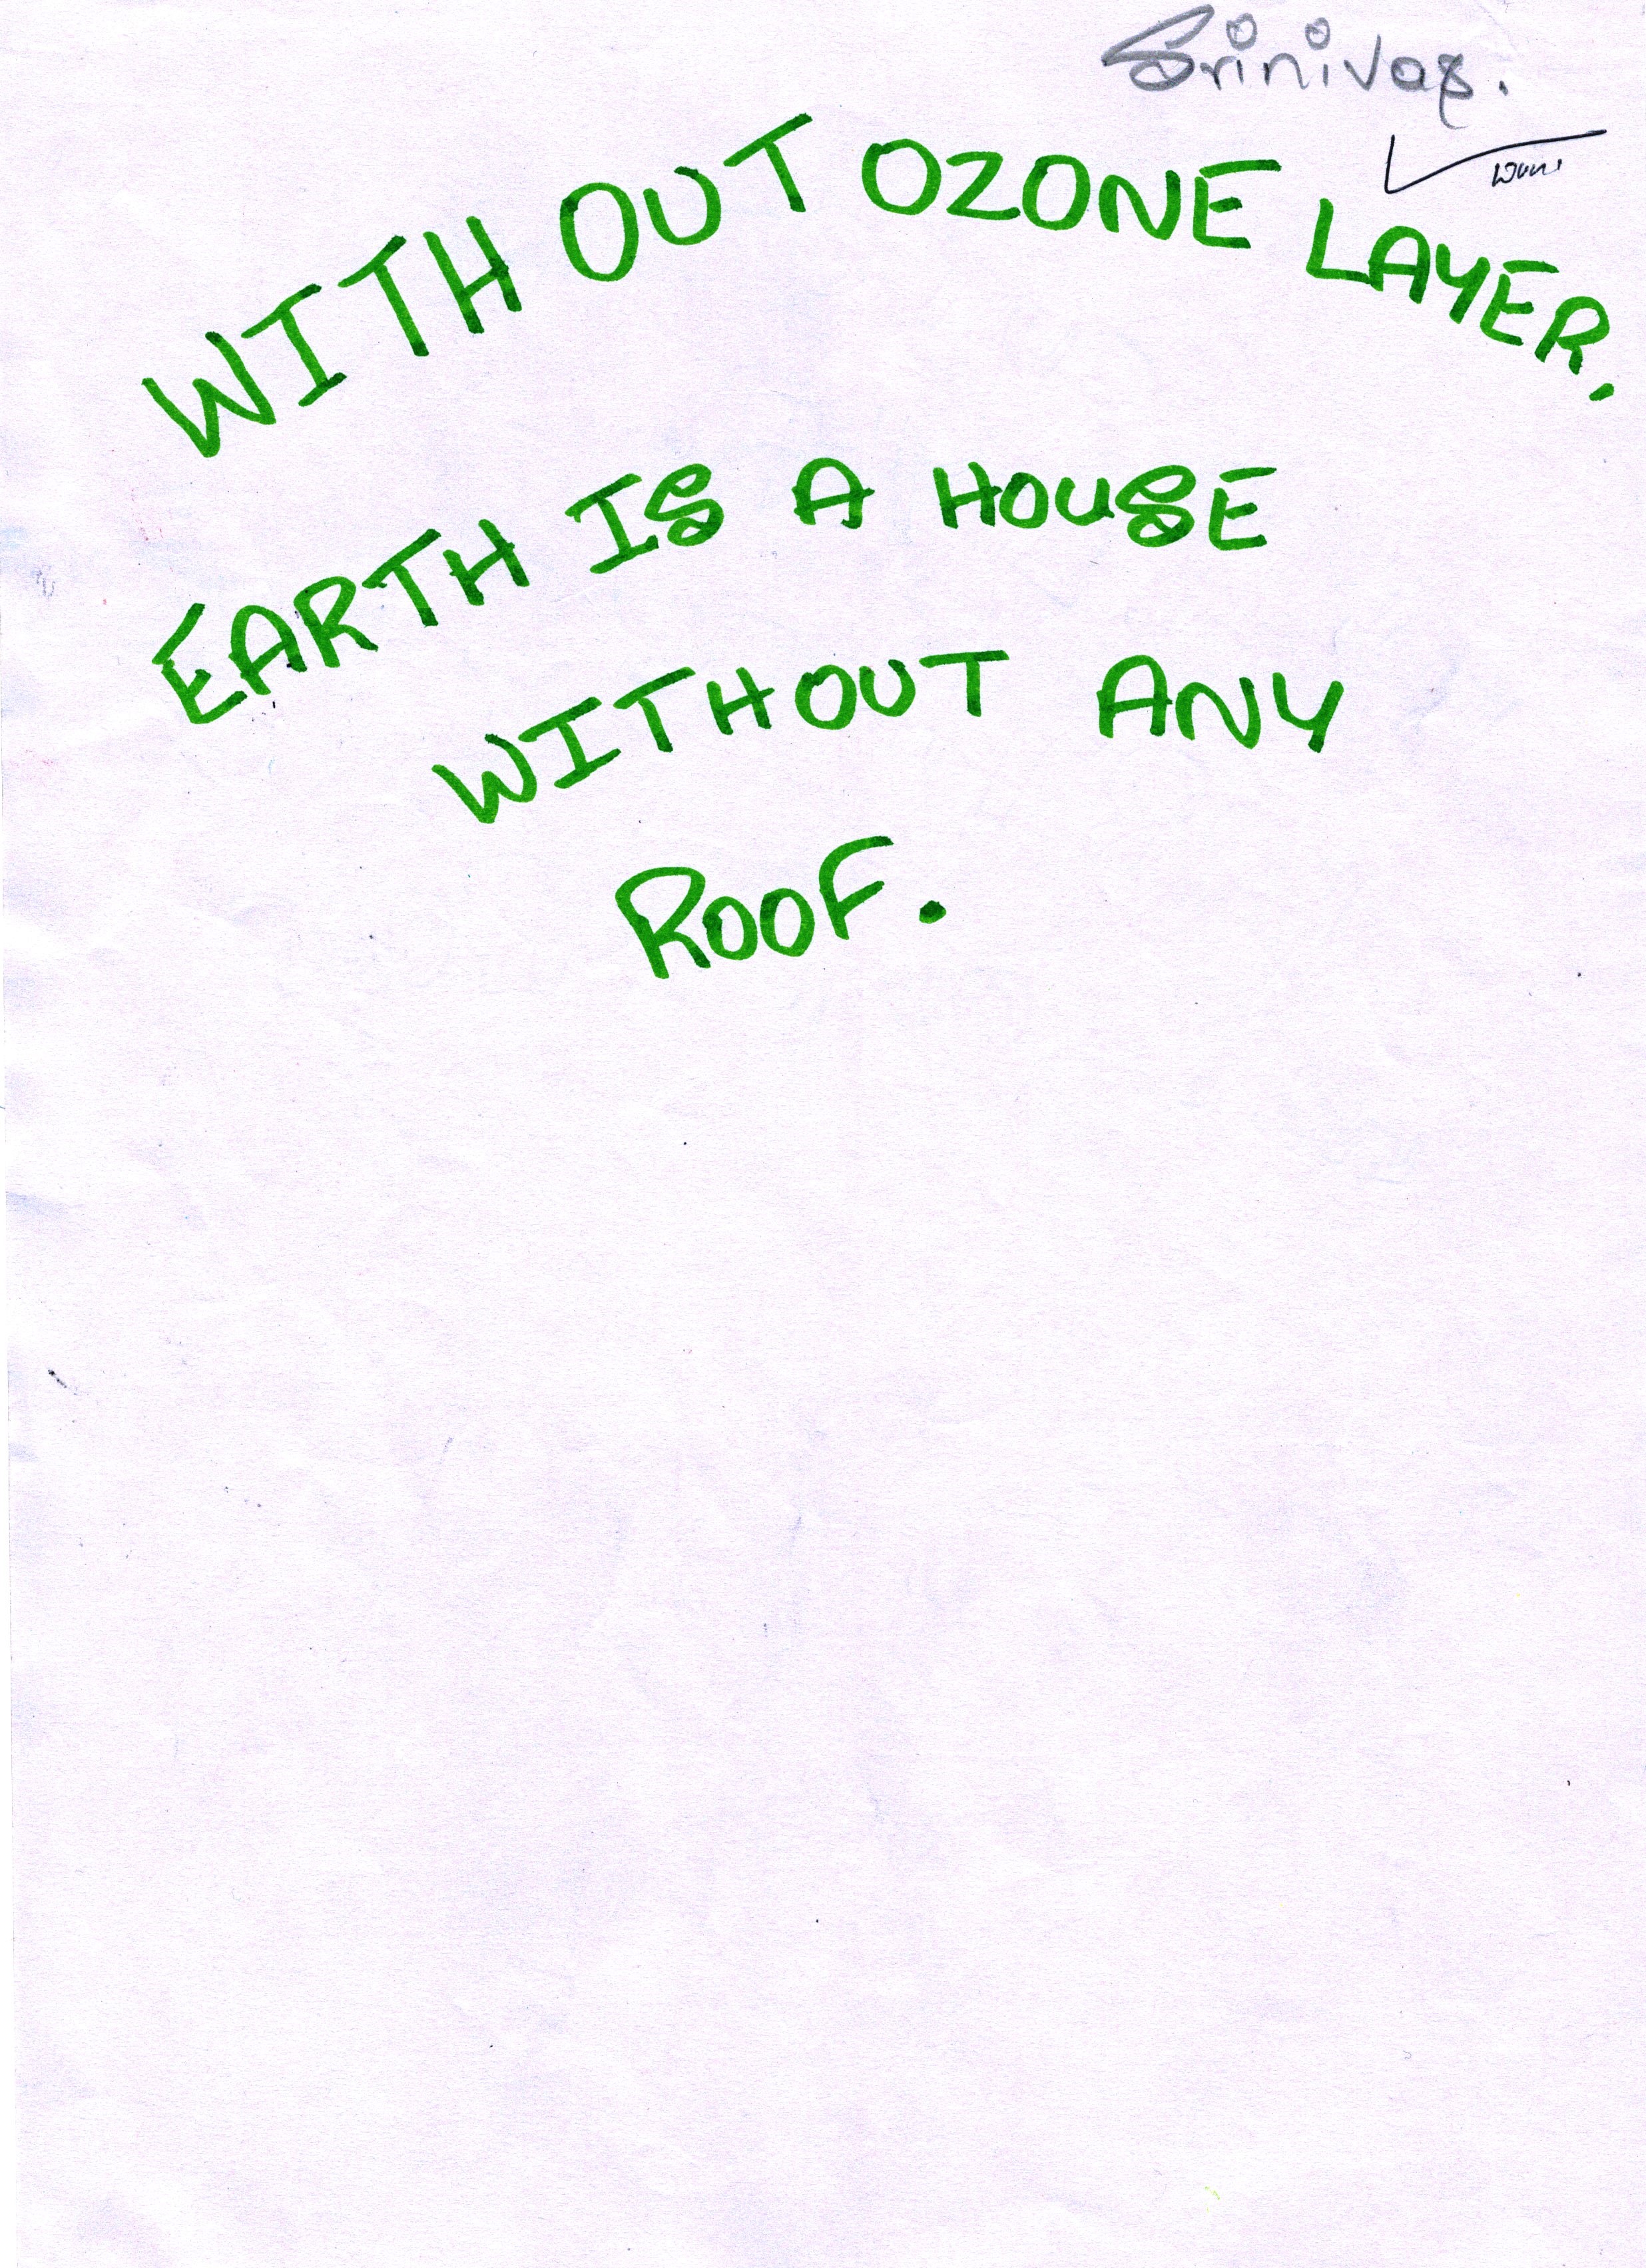 Srinivas.
WITH OUT OZONE LAYER,
EARTH IS A HOUSE
WITHOUT ANY
ROOF.